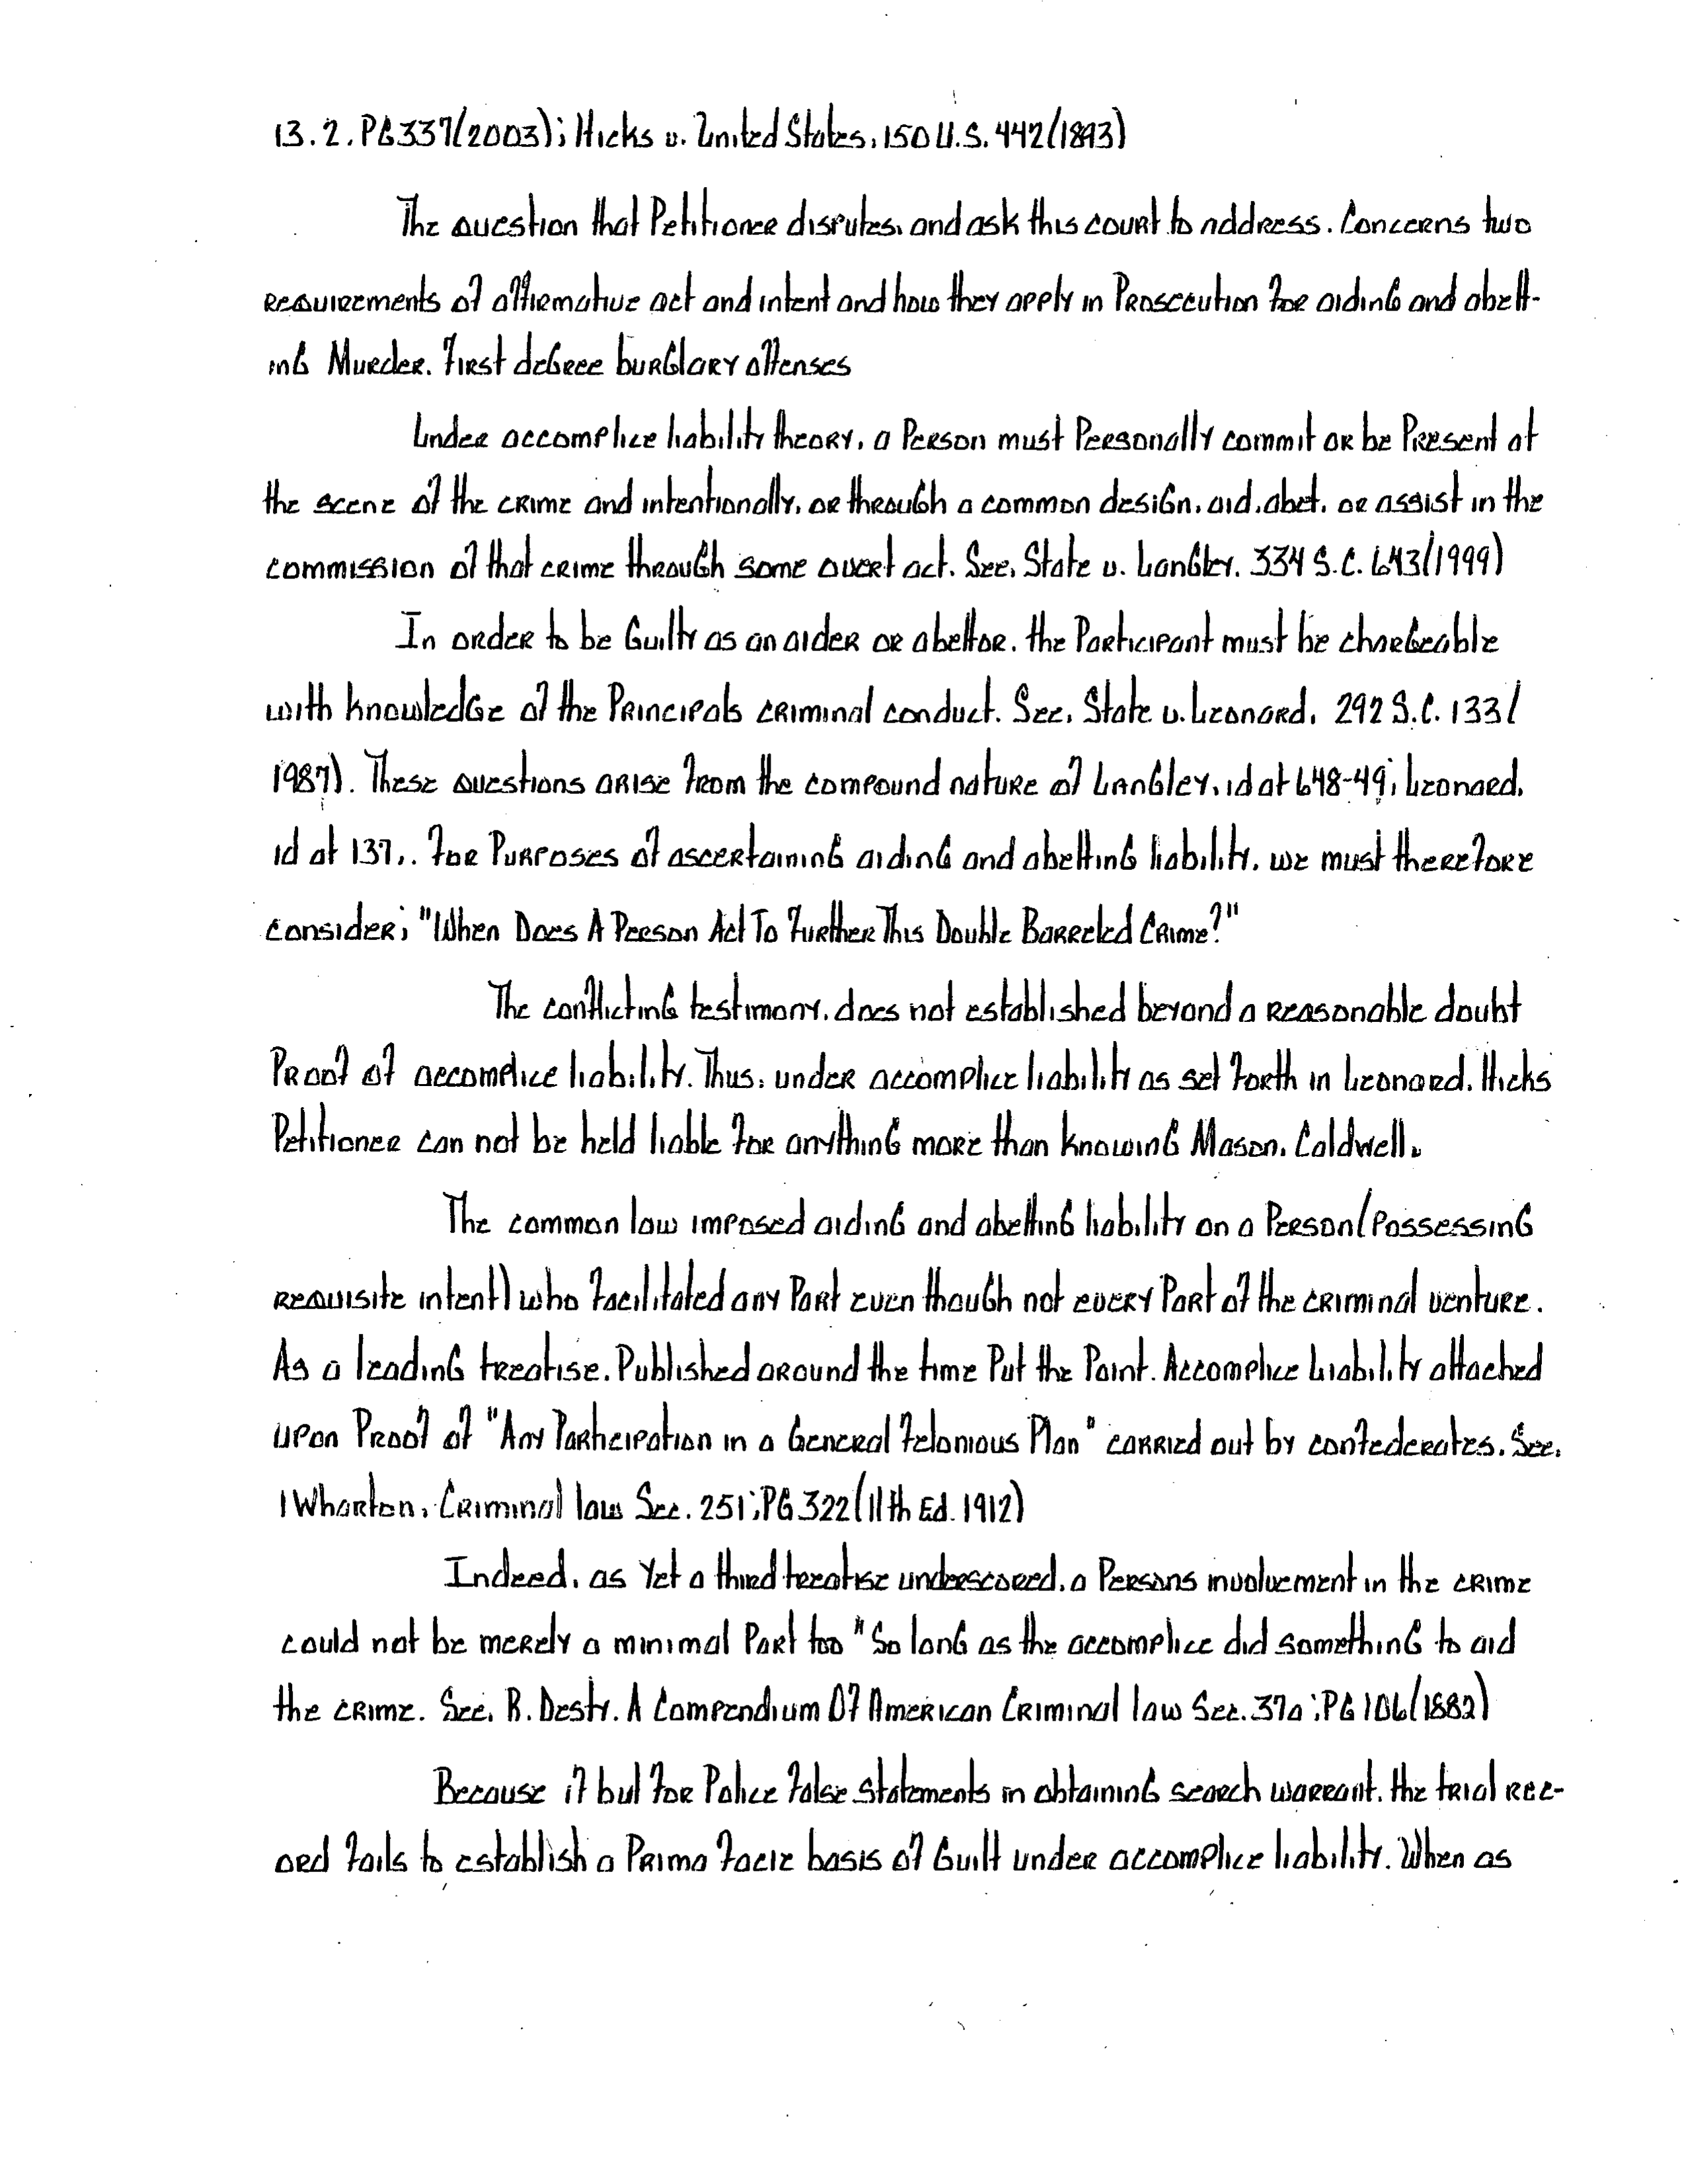 13.2.PG337(2003); Hicks v. United States, 150 U.S. 442(1893)
The question that Petitioner disputes, and ask this court to address. Concerns two
requirements of affirmative act and intent and how they apply in Prosecution for aiding and abett-
ing Murder. First degree burglary offenses
Under accomplice liability theory, a Person must Personally commit or be Present at
the scene of the crime and intentionally, or through a common design, aid, abet, or assist in the
commission of that crime through some overt act. See, State v. Langley, 334 S.C. 643(1999)
In order to be Guilty as an aider or abettor, the Participant must be chargeable
with knowledge of the Principals criminal conduct. See, State v. Leonard, 292 S.C. 133(
1987). These questions arise from the compound nature of Langley, id at 648-49; Leonard,
id at 137,. For Purposes of ascertaining aiding and abetting liability, we must therefore
consider; "When Does A Person Act To Further This Double Barreled Crime?"
The conflicting testimony, does not established beyond a reasonable doubt
Proof of accomplice liability. Thus, under accomplice liability as set forth in Leonard, Hicks
Petitioner can not be held liable for anything more than knowing Mason, Caldwell.
The common law imposed aiding and abetting liability on a Person(Possessing
requisite intent) who facilitated any Part even though not every Part of the criminal venture.
As a leading treatise. Published around the time Put the Point. Accomplice Liability attached
upon Proof of "Any Participation in a General Felonious Plan" carried out by confederates. See,
1 Wharton, Criminal law Sec. 251;PG 322(11th Ed. 1912)
Indeed, as Yet a third treatise underscored, a Persons involvement in the crime
could not be merely a minimal Part too "So long as the accomplice did something to aid
the crime. See, R. Desty. A Compendium Of American Criminal law Sec. 37a;PG 106(1882)
Because if but for Police False Statements in obtaining search warrant, the trial rec-
ord fails to establish a Prima Facie basis of Guilt under accomplice liability. When as